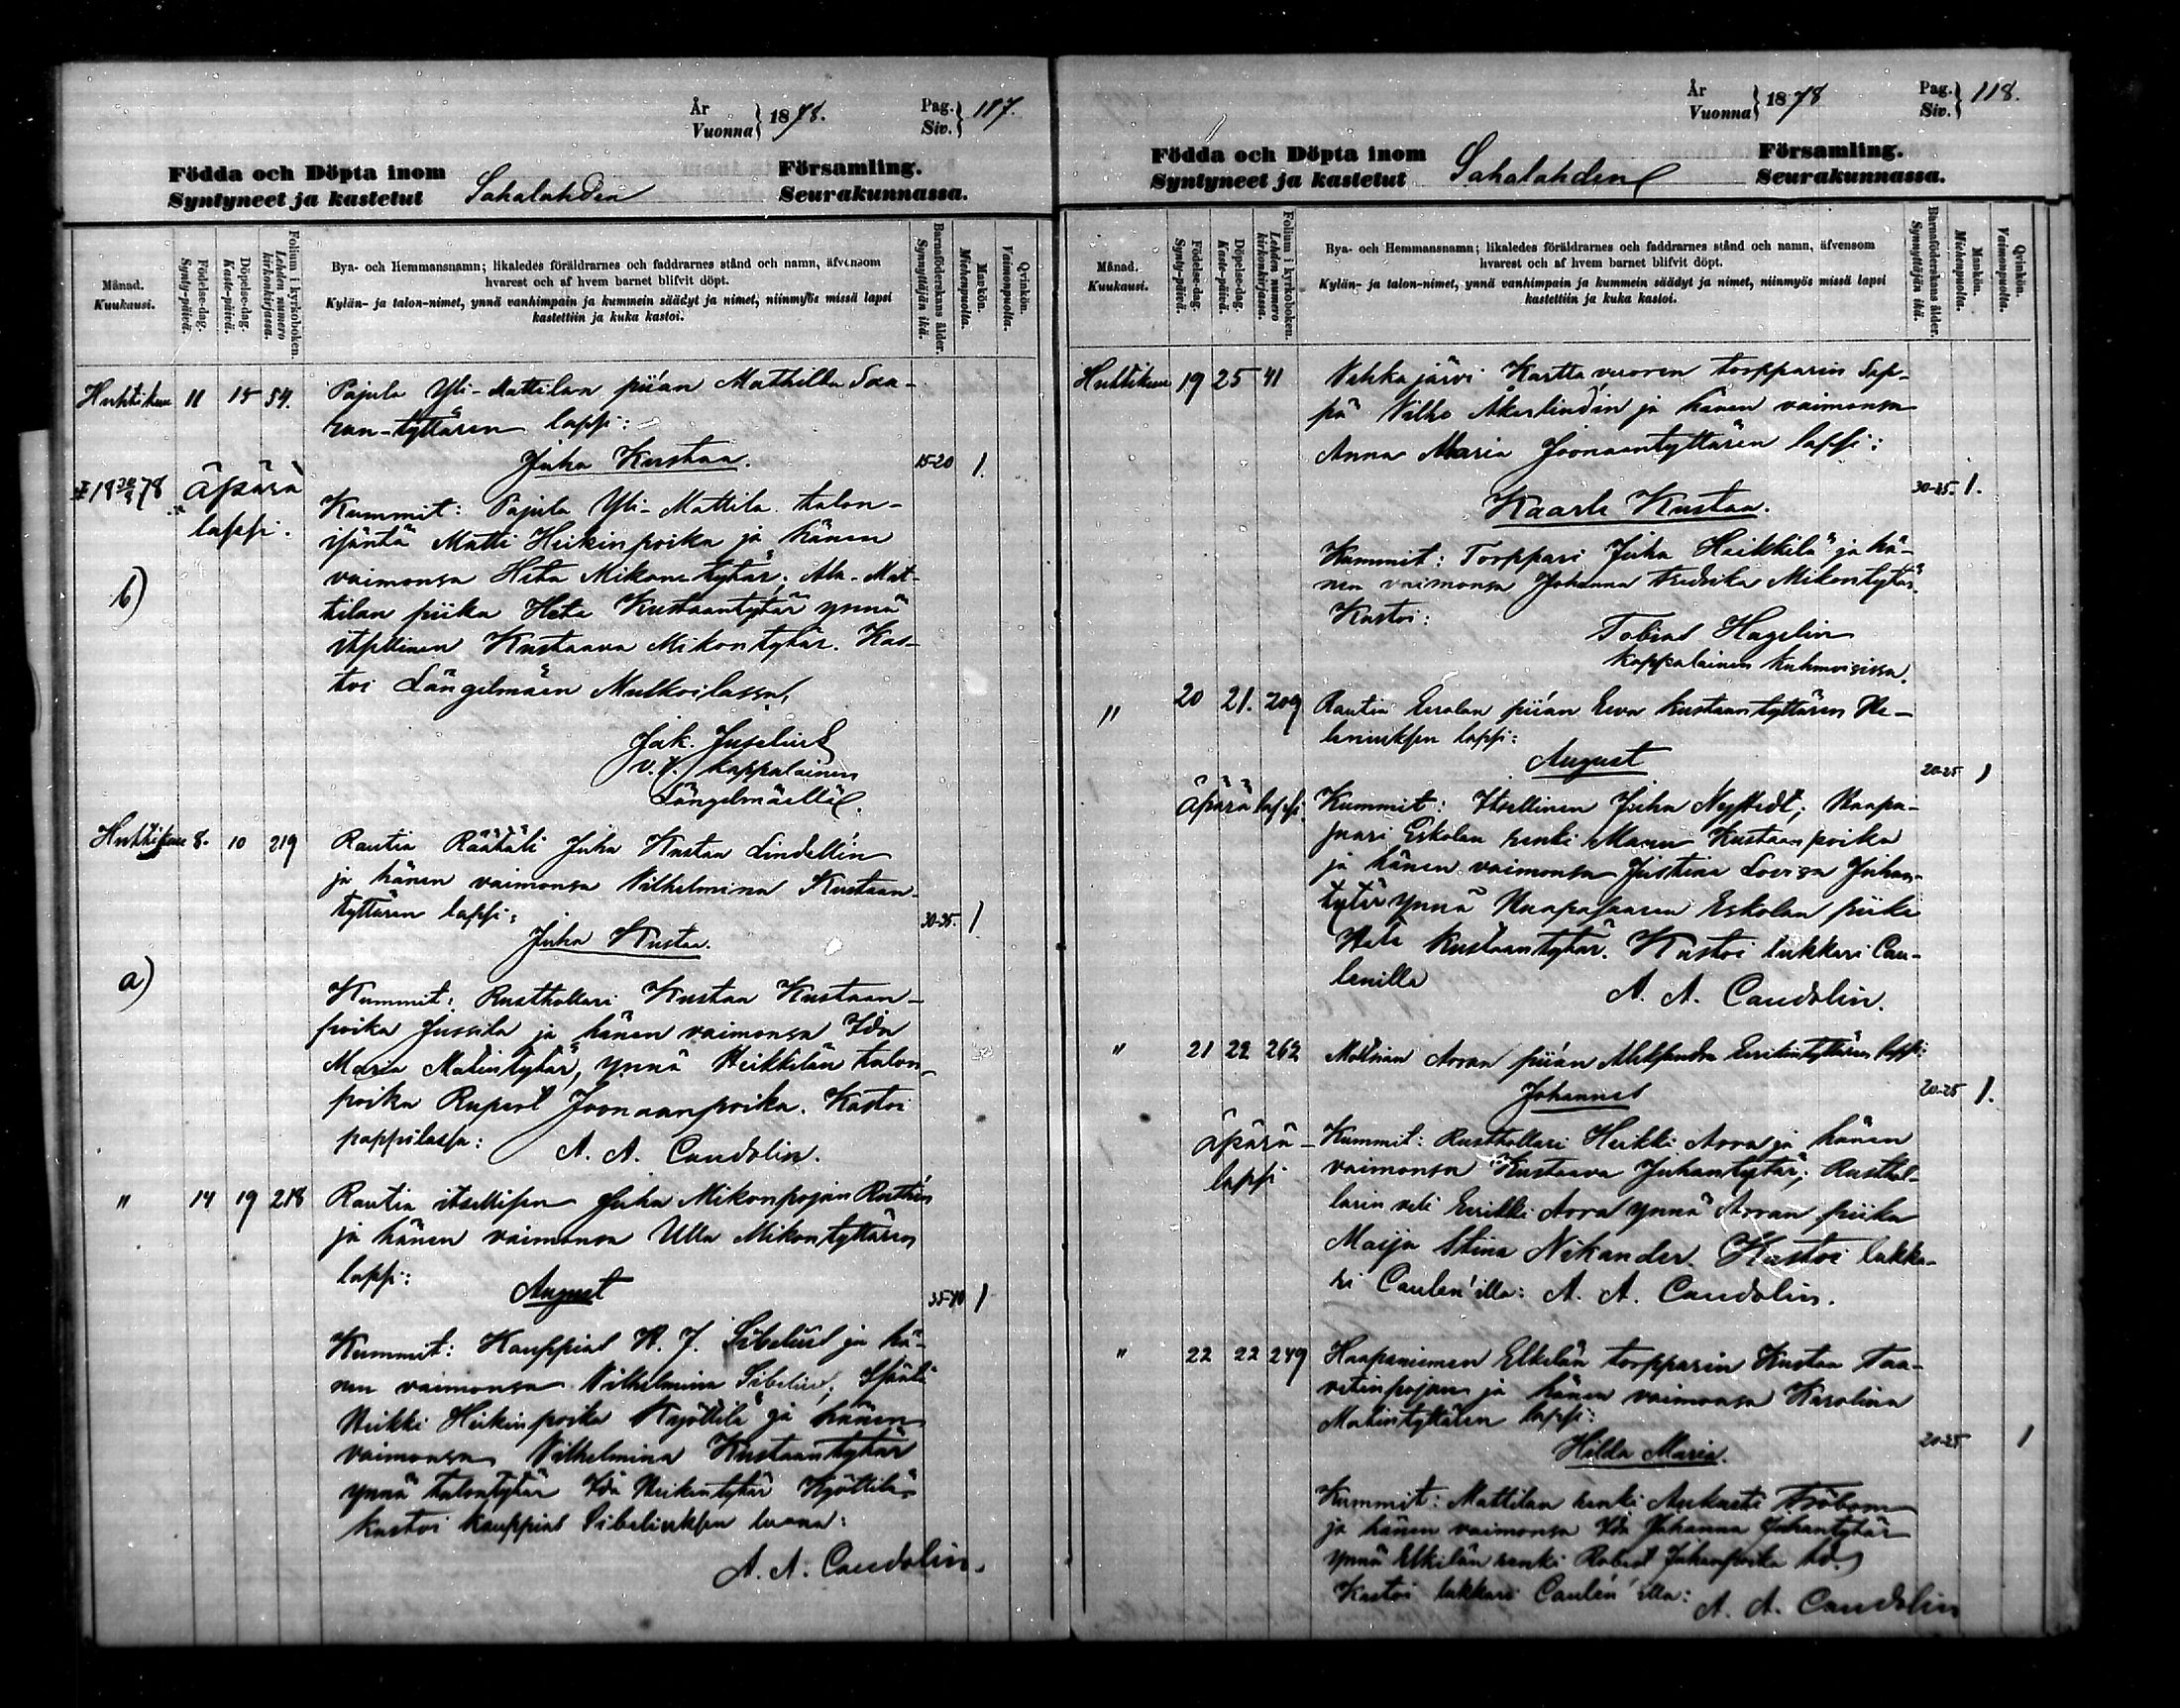 År
Vuonna 1878.
Pag.
Siv. 117.
Födda och Döpta inom Församling.
Syntyneet ja kastetut Sahalahden Seurakunnassa.
Månad.
Kuukausi.
Födelse-dag.
Synty-päivä.
Döpelse-dag.
Kaste-päivä.
Folium i kyrkoboken.
Lehden numero kirkonkirjassa.
Bya- och Hemmansnamn; likaledes föräldrarnes och faddrarnes stånd och namn, äfvensom
hvarest och af hvem barnet blifvit döpt.
Kylän- ja talon-nimet, ynnä vanhimpain ja kummein säädyt ja nimet, niinmyös missä lapsi
kastettiin ja kuka kastoi.
Barnaföderskans ålder.
Synnyttäjän ikä.
Mankön.
Miehenpuolta.
Qvinkön.
Vaimonpuolta.
Huhtikuu 11 15 54. Pajula Yli-Mattilan piian Mathilda
tyttären lapsi:
Juha Kustaa. 15-20 1.
78 Äpärä
lapsi.
Kummit: Pajula Yli-Mattila talon-
isäntä Matti Heikinpoika ja hänen
b) vaimonsa Heta Mikontytär; Ala-Mat-
tilan piika Heta Kustaantytär ynnä
itsellinen Kustaava Mikontytär. Kas-
toi Längelmäen
Jak. Juselius
v.t. kappalainen
Längelmäellä.
Huhtikuu 8. 10 219 Rautia Räätäli Juha Kustaa Lindellin
ja hänen vaimonsa Vilhelmina Kustaan-
tyttären lapsi: 30-35. 1
Juha Kustaa.
a) Kummit: Rusthollari Kustaa Kustaan-
poika Jussila ja hänen vaimonsa Ida
Maria Matintytär, ynnä Heikkilän talon-
poika Rupert Joonaanpoika. Kastoi
pappilassa: A. A. Candolin.
" 14 19 218 Rautia itsellisen Juha Mikonpojan
ja hänen vaimonsa Ulla Mikontyttären
lapsi: August 35-40 1
Kummit: Kauppias K. J. Sibelius ja hä-
nen vaimonsa Vilhelmina Sibelius; Isäntä
Heikki Heikinpoika Kyöttilä ja hänen
vaimonsa Vilhelmina Kustaantytär
ynnä talontytär Ida Heikintytär Kyöttilä.
Kastoi kauppias Sibeliuksen luona:
A. A. Candolin.
År
Vuonna 1878
Pag.
Siv. 118.
Födda och Döpta inom Församling.
Syntyneet ja kastetut Sahalahden Seurakunnassa.
Månad.
Kuukausi.
Födelse-dag.
Synty-päivä.
Döpelse-dag.
Kaste-päivä.
Folium i kyrkoboken.
Lehden numero kirkonkirjassa.
Bya- och Hemmansnamn; likaledes föräldrarnes och faddrarnes stånd och namn, äfvensom
hvarest och af hvem barnet blifvit döpt.
Kylän- ja talon-nimet, ynnä vanhimpain ja kummein säädyt ja nimet, niinmyös missä lapsi
kastettiin ja kuka kastoi.
Barnaföderskans ålder.
Synnyttäjän ikä.
Mankön.
Miehenpuolta.
Qvinkön.
Vaimonpuolta.
Huhtikuu 19 25 41 Vehkajärvi Karttavuoren torpparin Sep-
pä Vilho Åkerlindin ja hänen vaimonsa
Anna Maria Joonaantyttären lapsi:
Kaarle Kustaa. 30-35. 1.
Kummit: Torppari Juha Heikkilä ja hä-
nen vaimonsa Johanna Fredrika Mikontytär.
Kastoi: Tobias Hagelin
kappalainen Kuhmoisissa.
" 20 21. 209 Rautia Eerolan piian Eeva Kustaantyttären He-
leniuksen lapsi:
August 20-25 1
Äpärä lapsi. Kummit: Itsellinen Juha Nystedt; Haapa-
saari Eskolan renki Manu Kustaanpoika
ja hänen vaimonsa Justina Lovisa Juhan-
tytär ynnä Haapasaaren Eskolan piika
Heta Kustaantytär. Kastoi lukkari Cau-
lenilla A. A. Candolin.
" 21 22 262 Moltsian Arran piian Aleksandra Eerikintyttären lapsi:
Johannes 20-25 1.
Äpärä- Kummit: Rusthollari Heikki Arra ja hänen
lapsi vaimonsa Kustaava Juhantytär; Rusthol-
larin veli Eerikki Arra ynnä Arran piika
Maija Stina Nikander. Kastoi lukka-
ri Caulen'illa: A. A. Candolin.
" 22 22 249 Haapaniemen Elkelän torpparin Kustaa Taa-
vetinpojan ja hänen vaimonsa Karolina
Matintyttären lapsi:
Hilda Maria. 20-25 1
Kummit: Mattilan renki Aukusti
ja hänen vaimonsa Ida Johanna Juhantytär
ynnä Elkelän renki Robert Juhanpoika
Kastoi lukkari Caulén'illa: A. A. Candolin